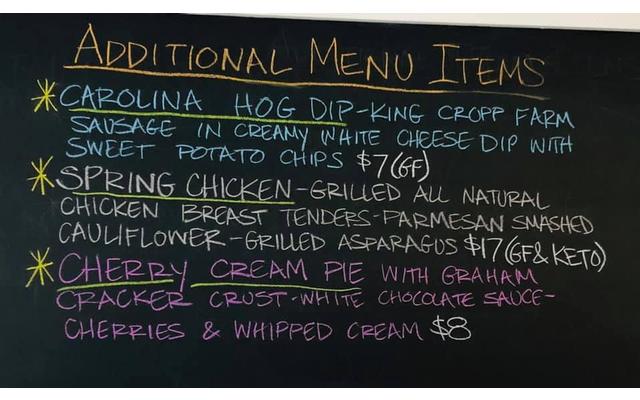 ADDITIONAL MENU ITEMS
CAROLINA HOG DIP-KING CROPP FARM
SAUSAGE IN CREAMY WHITE CHEESE DIP WITH
SWEET POTATO CHIPS $7(GF)
SPRING CHICKEN-GRILLED ALL NATURAL
CHICKEN BREAST TENDERS-PARMESAN SMASHED
CAULIFLOWER-GRILLED ASPARAGUS $17(GF&KETO)
CHERRY CREAM PIE WITH GRAHAM
CRACKER CRUST-WHITE CHOCOLATE SAUCE-
CHERRIES & WHIPPED CREAM $8